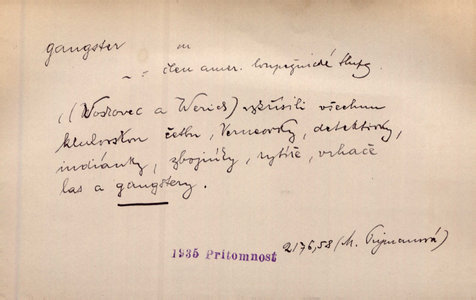 gangster m
~ : člen amer. loupežnické tlupy.
((Voskovec a Werich) zkusili všechnu
klukovskou četbu, Verneovky, detektivky,
indiánky, zbojníky, rytíře, vrhače
las a gangstery.
1935 Přítomnost 2176,58 (M.